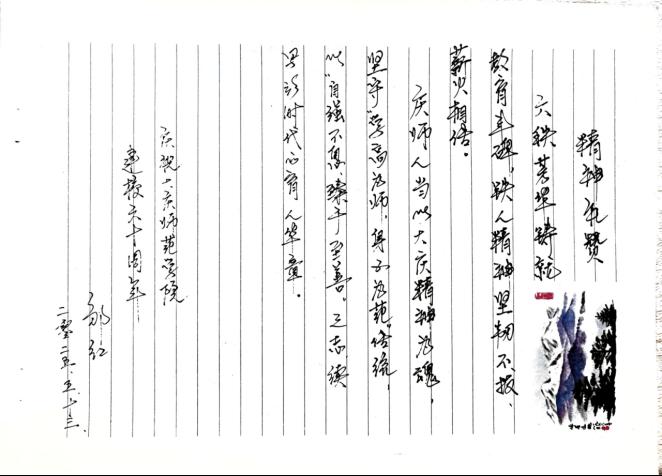 精神礼赞
六秩芳华铸就
教育丰碑，铁人精神坚韧不拔、
薪火相传。
庆师人当以大庆精神为魂，
坚守“学高为师，身正为范”传统，
以“自强不息、臻于至善”之志续
写新时代的育人华章。
庆祝大庆师范学院
建校六十周年
红
二零二五.五.十三.